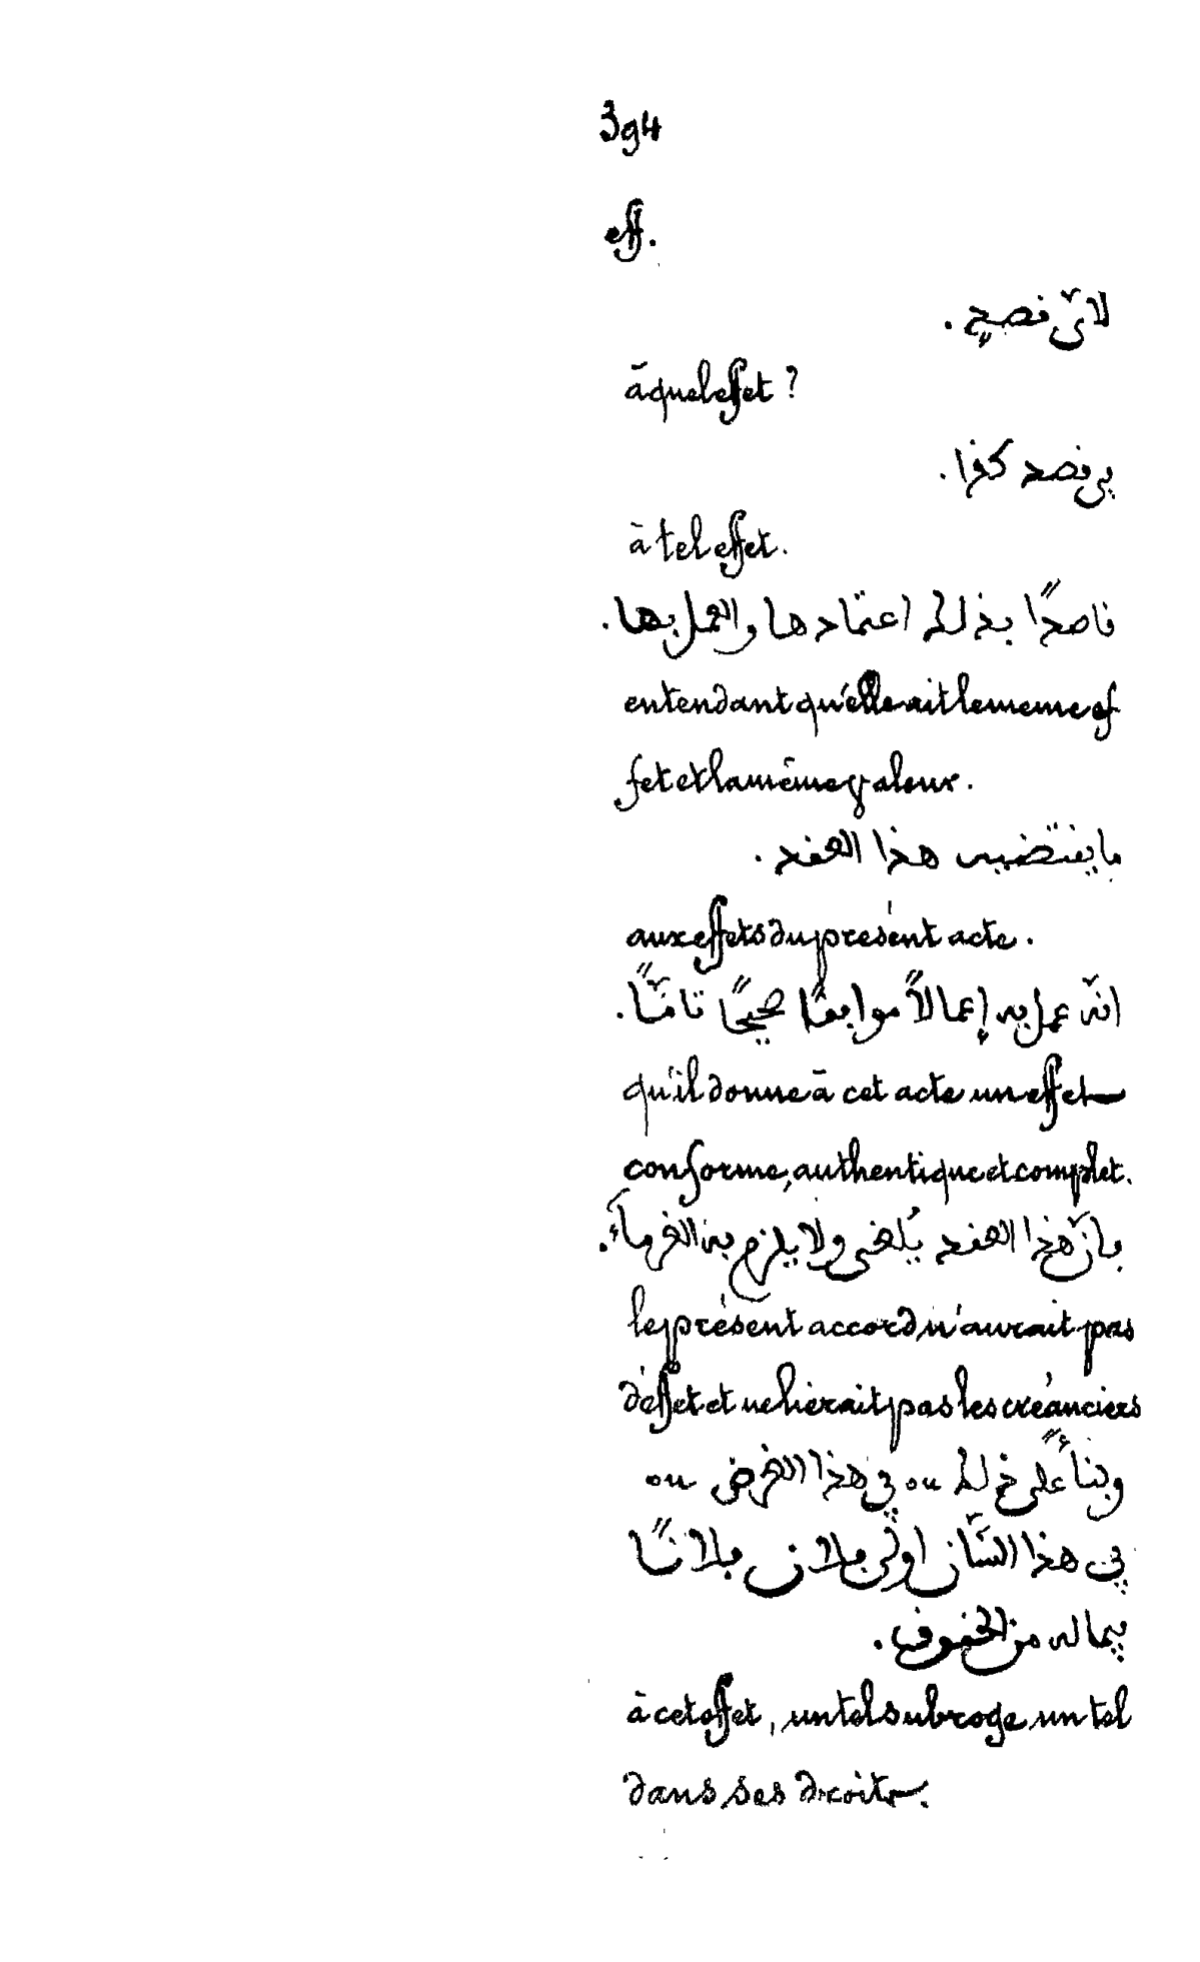 394
eff.
لاىّ فصدٍ.
à quel effet ?
بى فصد كذا.
à tel effet.
فاصدًا بذلك اعتمادها والعمل بها.
entendant qu'elle ait le meme ef
fet et la même valeur.
ما يفتضيه هذا العفد.
aux effets du présent acte.
انّه عمل به إعمالاً موافقًا صحيحًا تامًّا.
qu'il donne à cet acte un effet
conforme, authentique et complet.
بانّ هذا العفد يُلغى ولا يلزم به الغرماَء.
le présent accord n'aurait pas
d'effet et ne lierait pas les créanciers
وبناءً على ذلك ou بى هذا الغرض ou
بى هذا الشّان اولى فلان فلانًا
بيما له من الحفوف.
à cet effet, un tel subroge un tel
dans ses droits.